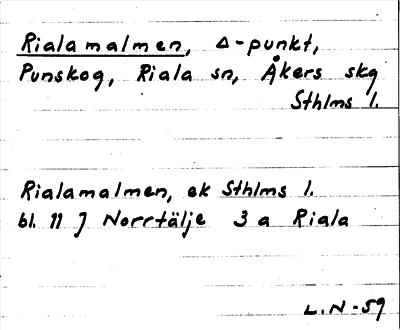 Rialamalmen, Δ-punkt,
Punskog, Riala sn, Åkers skg
Sthlms l.
Rialamalmen, ek Sthlms l.
bl. 11 J Norrtälje 3 a Riala
L.N-59